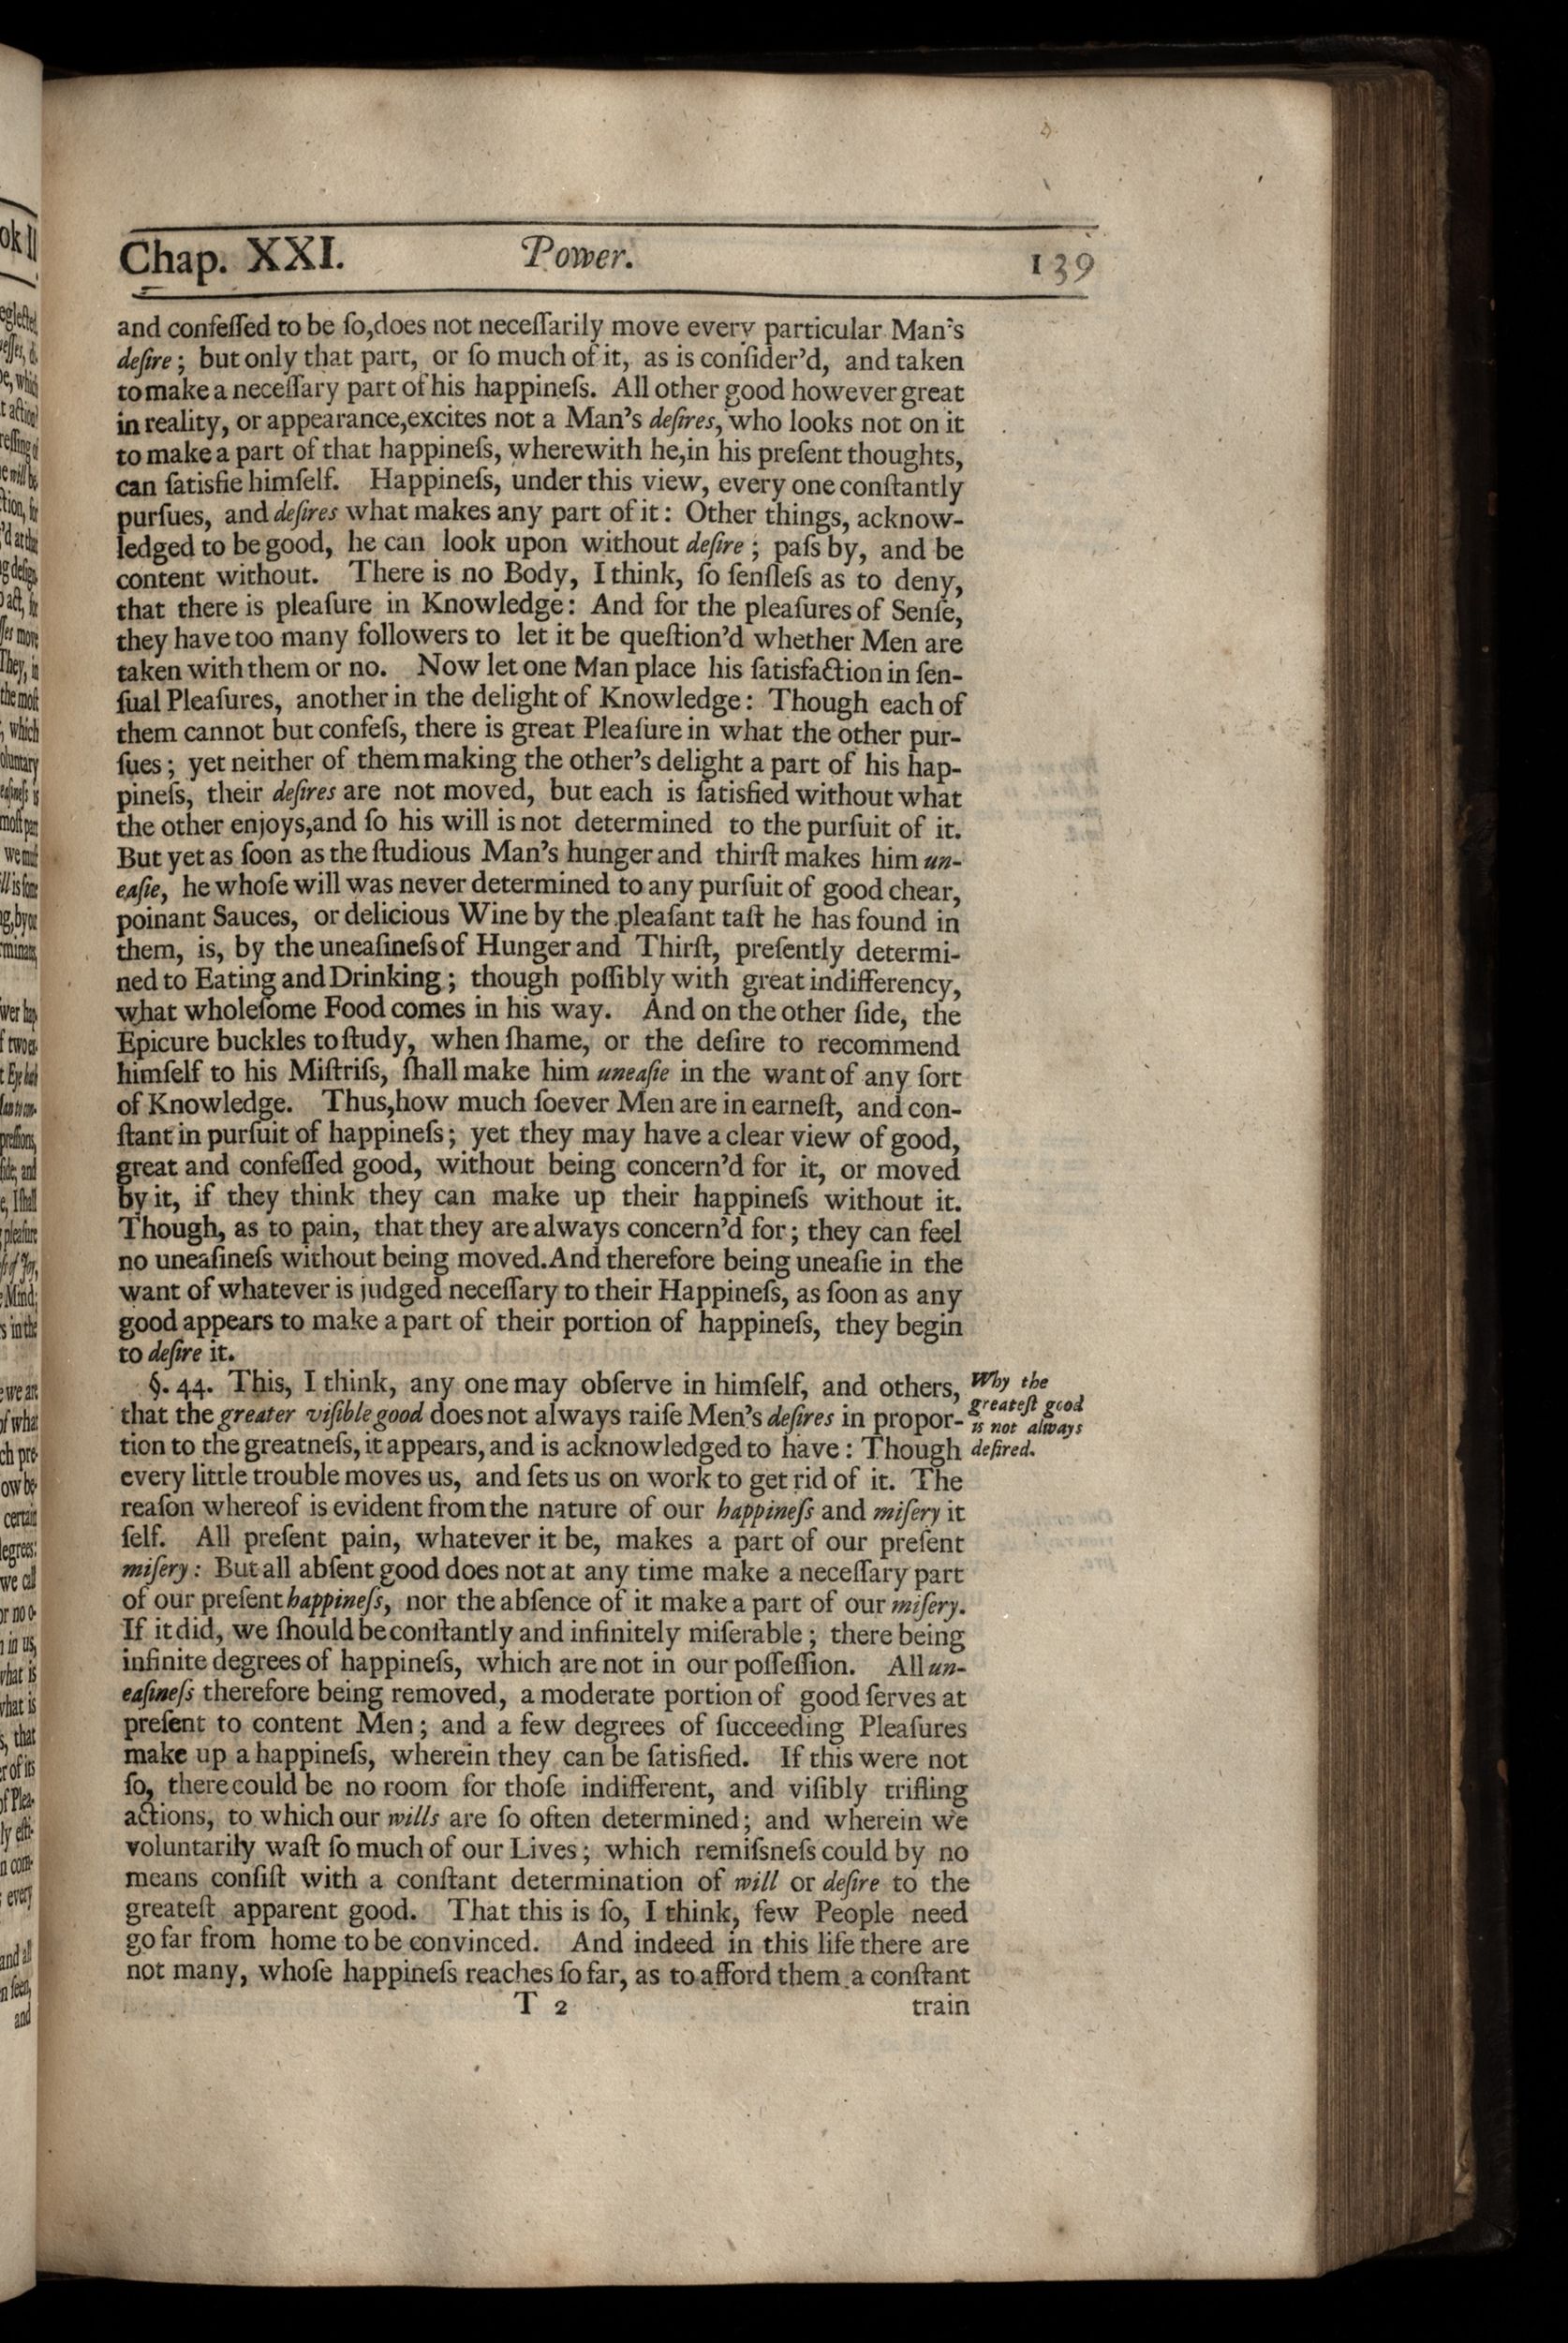 Chap. XXI. Power. 139
and confeſſed to be ſo,does not neceſſarily move every particular Man's
deſire; but only that part, or ſo much of it, as is conſider'd, and taken
to make a neceſſary part of his happineſs. All other good however great
in reality, or appearance,excites not a Man's deſires, who looks not on it
to make a part of that happineſs, wherewith he,in his preſent thoughts,
can ſatisfie himſelf. Happineſs, under this view, every one conſtantly
purſues, and deſires what makes any part of it: Other things, acknow-
ledged to be good, he can look upon without deſire; paſs by, and be
content without. There is no Body, I think, ſo ſenſleſs as to deny,
that there is pleaſure in Knowledge: And for the pleaſures of Senſe,
they have too many followers to let it be queſtion'd whether Men are
taken with them or no. Now let one Man place his ſatisfaction in ſen-
ſual Pleaſures, another in the delight of Knowledge: Though each of
them cannot but confeſs, there is great Pleaſure in what the other pur-
ſues; yet neither of them making the other's delight a part of his hap-
pineſs, their deſires are not moved, but each is ſatisfied without what
the other enjoys,and ſo his will is not determined to the purſuit of it.
But yet as ſoon as the ſtudious Man's hunger and thirſt makes him un-
eaſie, he whoſe will was never determined to any purſuit of good chear,
poinant Sauces, or delicious Wine by the pleaſant taſt he has found in
them, is, by the uneaſineſs of Hunger and Thirſt, preſently determi-
ned to Eating and Drinking; though poſſibly with great indifferency,
what wholeſome Food comes in his way. And on the other ſide, the
Epicure buckles to ſtudy, when ſhame, or the deſire to recommend
himſelf to his Miſtriſs, ſhall make him uneaſie in the want of any ſort
of Knowledge. Thus,how much ſoever Men are in earneſt, and con-
ſtant in purſuit of happineſs; yet they may have a clear view of good,
great and confeſſed good, without being concern'd for it, or moved
by it, if they think they can make up their happineſs without it.
Though, as to pain, that they are always concern'd for; they can feel
no uneaſineſs without being moved.And therefore being uneaſie in the
want of whatever is judged neceſſary to their Happineſs, as ſoon as any
good appears to make a part of their portion of happineſs, they begin
to deſire it.
§. 44. This, I think, any one may obſerve in himſelf, and others,
that the greater viſible good does not always raiſe Men's deſires in propor-
tion to the greatneſs, it appears, and is acknowledged to have: Though
every little trouble moves us, and ſets us on work to get rid of it. The
reaſon whereof is evident from the nature of our happineſs and miſery it
ſelf. All preſent pain, whatever it be, makes a part of our preſent
miſery: But all abſent good does not at any time make a neceſſary part
of our preſent happineſs, nor the abſence of it make a part of our miſery.
If it did, we ſhould be conſtantly and infinitely miſerable; there being
infinite degrees of happineſs, which are not in our poſſeſſion. All un-
eaſineſs therefore being removed, a moderate portion of good ſerves at
preſent to content Men; and a few degrees of ſucceeding Pleaſures
make up a happineſs, wherein they can be ſatisfied. If this were not
ſo, there could be no room for thoſe indifferent, and viſibly trifling
actions, to which our wills are ſo often determined; and wherein we
voluntarily waſt ſo much of our Lives; which remiſsneſs could by no
means conſiſt with a conſtant determination of will or deſire to the
greateſt apparent good. That this is ſo, I think, few People need
go far from home to be convinced. And indeed in this life there are
not many, whoſe happineſs reaches ſo far, as to afford them a conſtant
T 2 train
Why the
greateſt good
is not always
deſired.